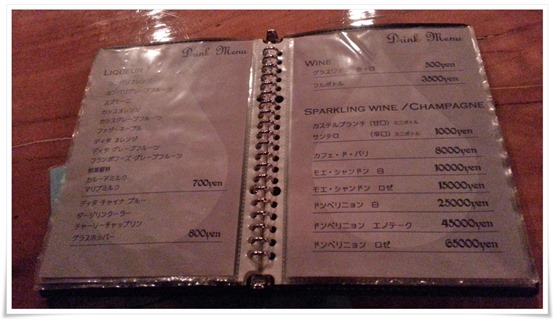 Drink Menu
LIQUEUR
カシスオレンジ
カシスグレープフルーツ
ファジーネーブル
ディタ オレンジ
ディタ グレープフルーツ
フランボワーズ・グレープフルーツ
カルーアミルク
マリブミルク 700yen
ディタ チャイナ ブルー
ダージリンクーラー
チャーリーチャップリン
グラスホッパー 800yen
Drink Menu
WINE
500yen
フルボトル 3500yen
SPARKLING WINE / CHAMPAGNE
カステルブランチ (甘口) ミニボトル
サンテロ (辛口) ミニボトル 1000yen
カフェ・ド・パリ 8000yen
モエ・シャンドン 白 10000yen
モエ・シャンドン ロゼ 15000yen
ドンペリニョン 白 25000yen
ドンペリニョン エノテーク 45000yen
ドンペリニョン ロゼ 65000yen